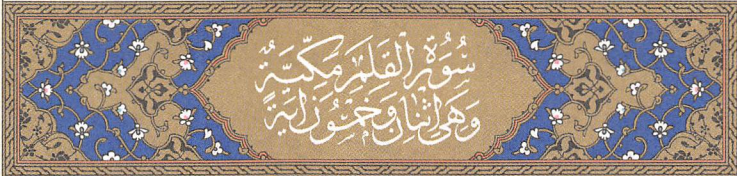 سُورَةُ الْقَلَمِ مَكِّيَّةٌ
وَهِيَ اثْنَانِ وَخَمْسُونَ آيَةً